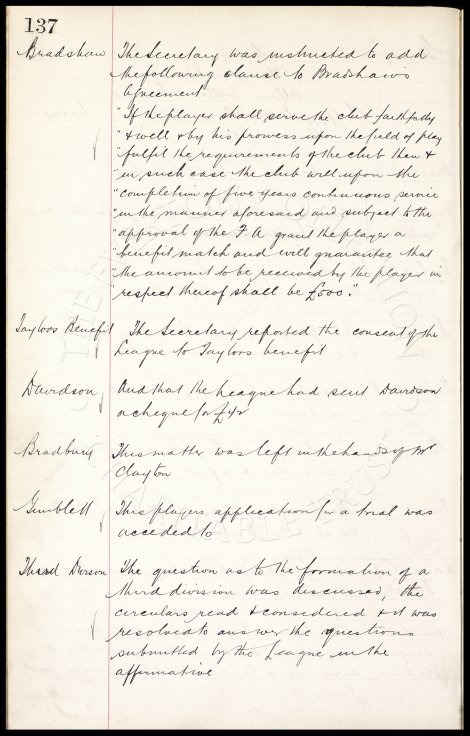 137
Bradshaw The Secretary was instructed to add
the following clause to Bradshaws
Agreement
"If the player shall serve the club faithfully
"& well & by his prowess upon the field of play
"fulfil the requirements of the club then &
"in such case the club will upon the
"completion of five years continuous service
"in the manner aforesaid and subject to the
"approval of the F.A. grant the player a
"benefit match and will guarantee that
"the amount to be received by the player in
"respect thereof shall be £500."
Taylors Benefit The Secretary reported the consent of the
League to Taylors benefit
Davidson And that the League had sent Davidson
a cheque for
Bradbury This matter was left in the hands of Mr
Clayton
Gimblett This players application for a trial was
acceded to
Third Division The question as to the formation of a
third division was discussed, the
circulars read & considered & it was
resolved to answer the questions
submitted by the League in the
affirmative